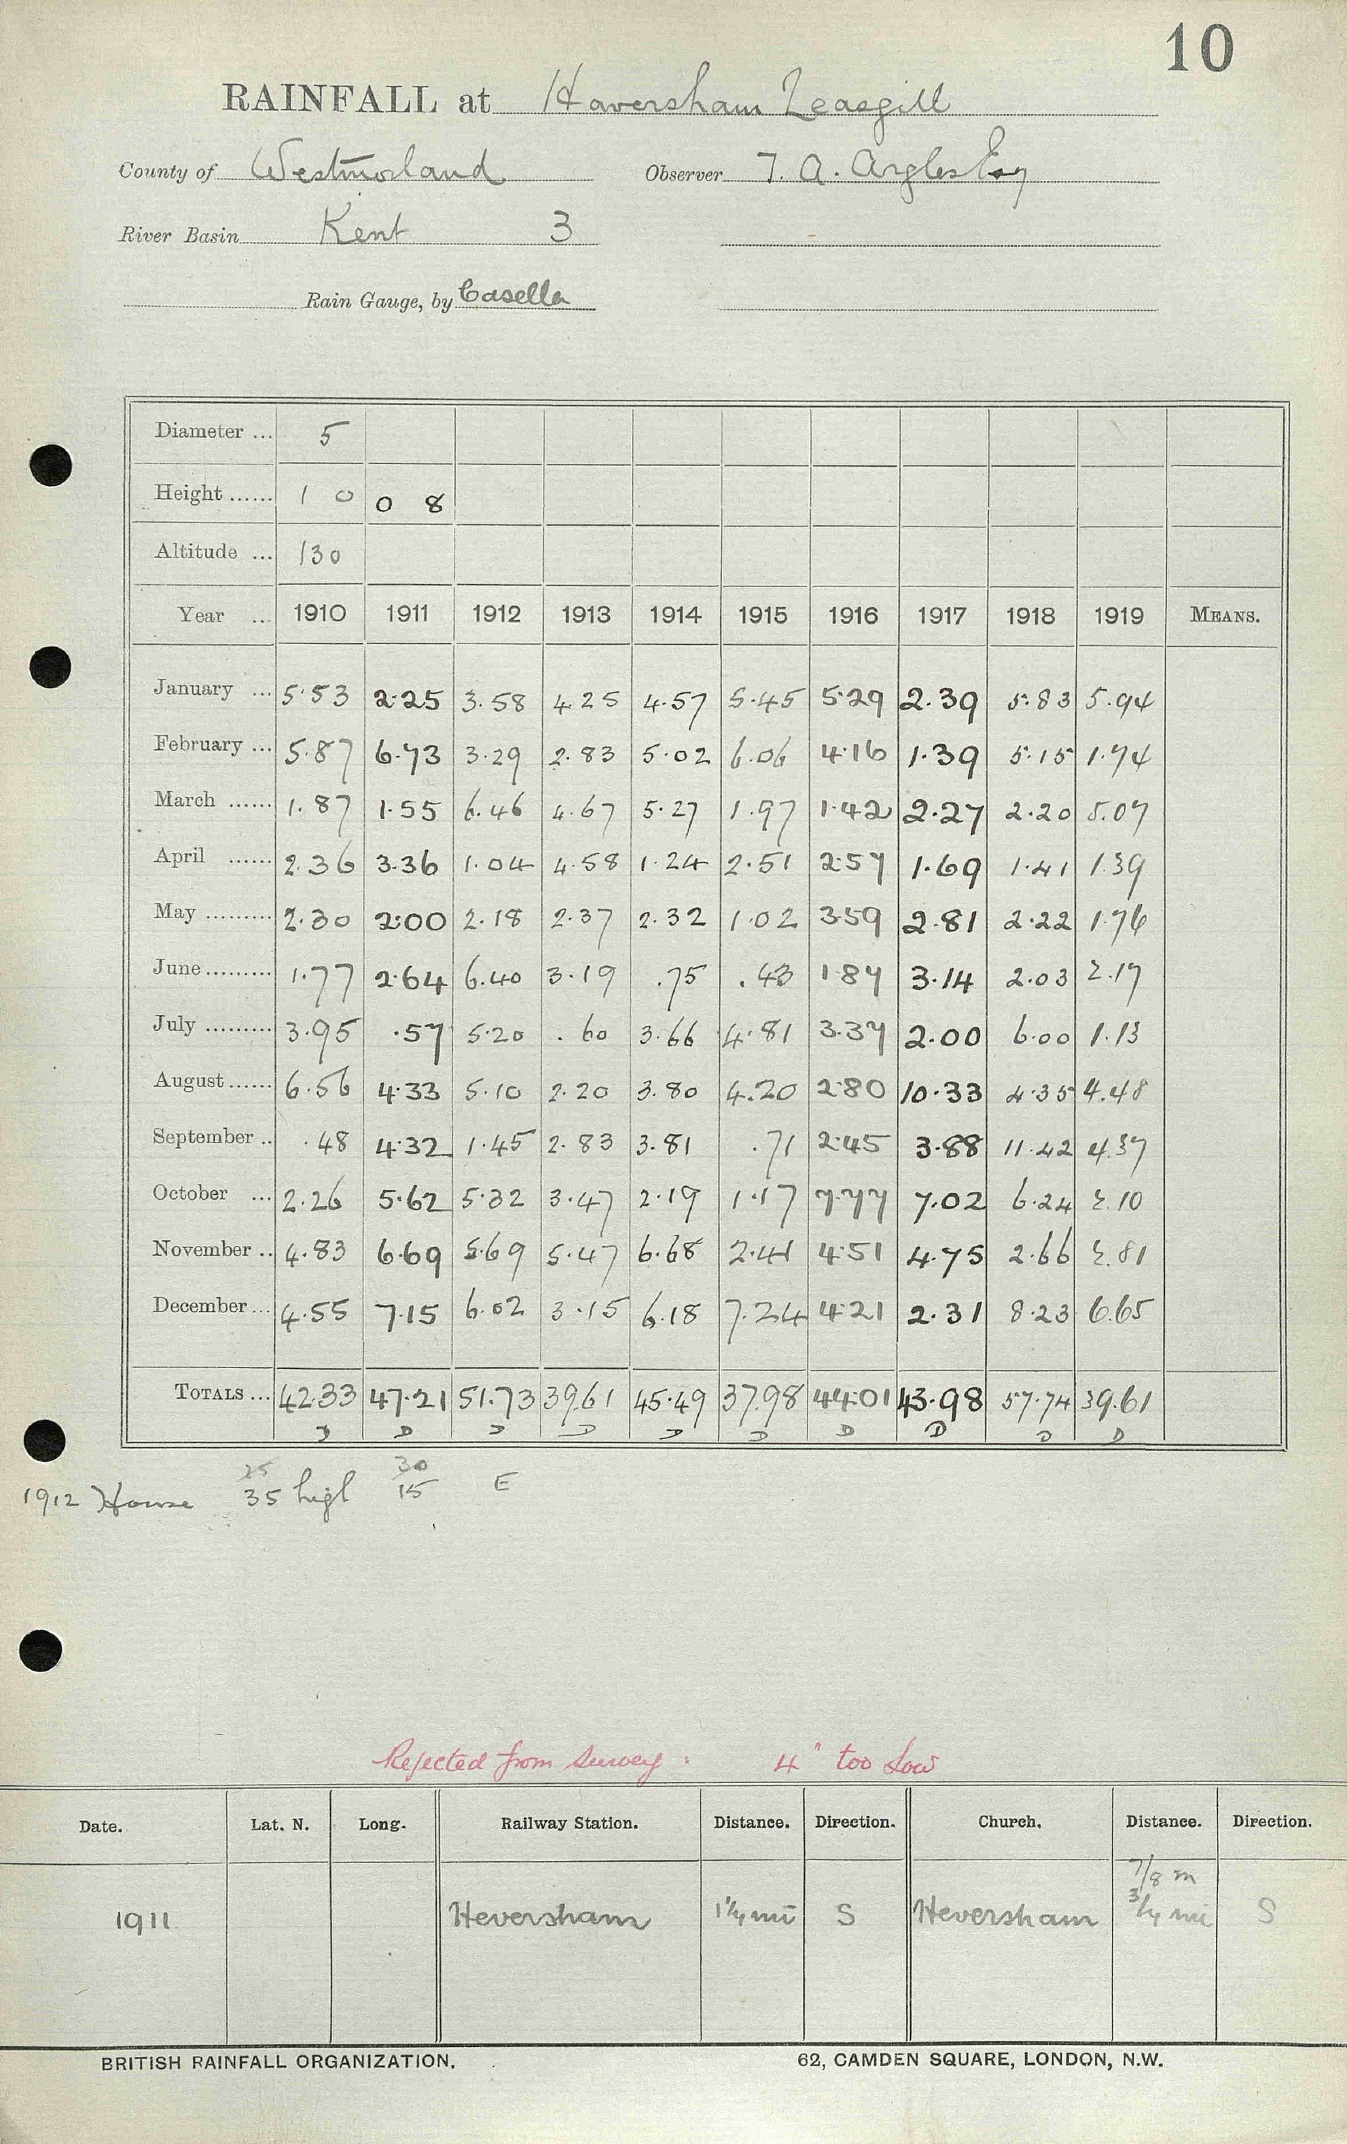 10
RAINFALL at Haversham Leasgill
County of Westmorland Observer T. A. Argles Esq
River Basin Kent 3
Rain Gauge, by Casella
Diameter ... 5
Height ...... 1 0 0 8
Altitude ... 130
Year ... 1910 1911 1912 1913 1914 1915 1916 1917 1918 1919 MEANS.
January ... 5.53 2.25 3.58 4.25 4.57 5.45 5.29 2.39 5.83 5.94
February ... 5.87 6.73 3.29 2.83 5.02 6.06 4.16 1.39 5.15 1.74
March ...... 1.87 1.55 6.46 4.67 5.27 1.97 1.42 2.27 2.20 5.07
April ...... 2.36 3.36 1.04 4.58 1.24 2.51 2.57 1.69 1.41 1.39
May ......... 2.30 2.00 2.18 2.37 2.32 1.02 3.59 2.81 2.22 1.76
June ......... 1.77 2.64 6.40 3.19 .75 .43 1.87 3.14 2.03 2.17
July ......... 3.95 .57 5.20 .60 3.66 4.81 3.37 2.00 6.00 1.13
August ...... 6.56 4.33 5.10 2.20 3.80 4.20 2.80 10.33 4.35 4.48
September .. .48 4.32 1.45 2.83 3.81 .71 2.45 3.88 11.42 4.37
October ... 2.26 5.62 5.32 3.47 2.19 1.17 7.77 7.02 6.24 2.10
November .. 4.83 6.69 5.69 5.47 6.68 2.41 4.51 4.75 2.66 2.81
December ... 4.55 7.15 6.02 3.15 6.18 7.24 4.21 2.31 8.23 6.65
TOTALS ... 42.33 47.21 51.73 39.61 45.49 37.98 44.01 43.98 57.74 39.61
D D D D D D D D D D
25 30
1912 House 35 high 15 E
Rejected from Survey : 4" too low
Date. Lat. N. Long. Railway Station. Distance. Direction. Church. Distance. Direction.
7/8 m
1911 Heversham 1 1/4 mi S Heversham 3/4 mi S
BRITISH RAINFALL ORGANIZATION. 62, CAMDEN SQUARE, LONDON, N.W.